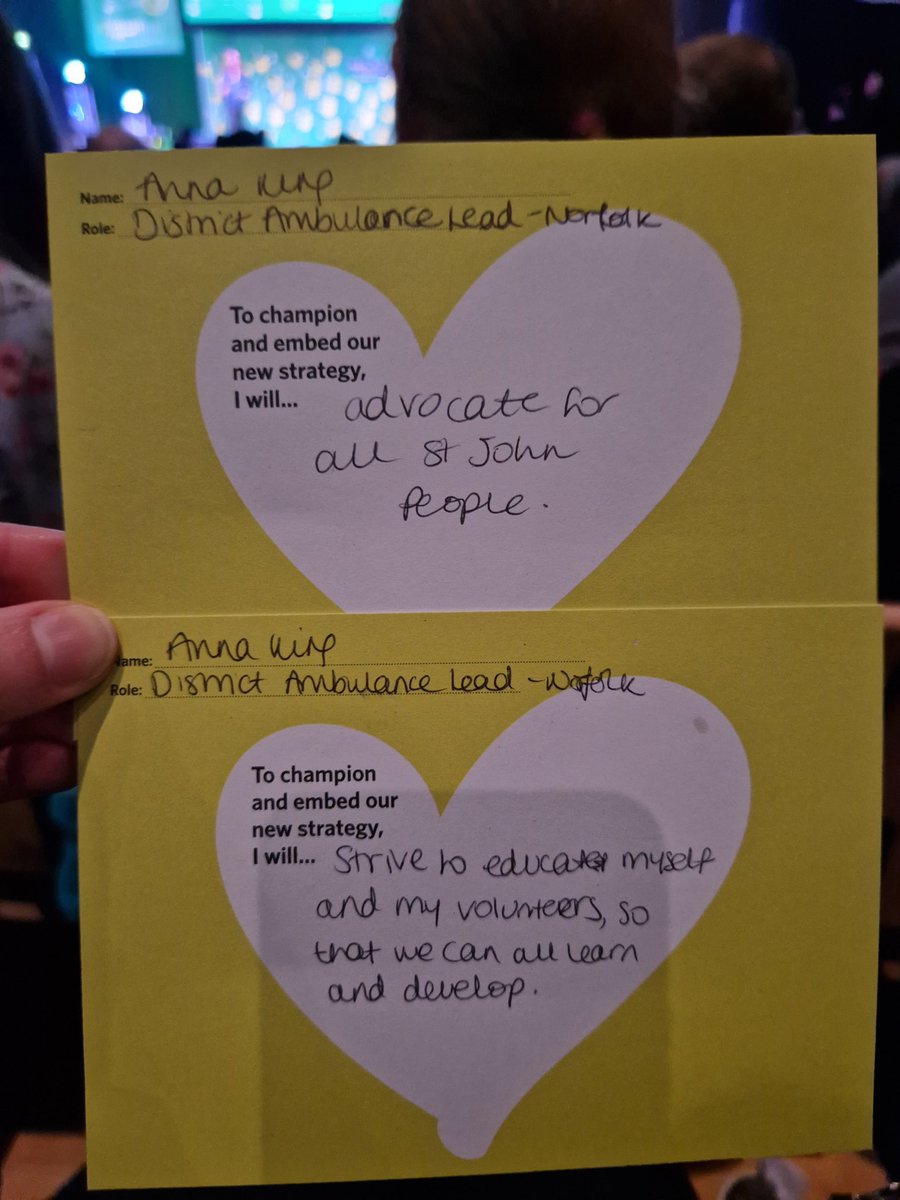 Name: Anna King
Role: District Ambulance Lead - Norfolk
To champion
and embed our
new strategy,
I will... advocate for
all St John
People.
Name: Anna King
Role: District Ambulance Lead - Norfolk
To champion
and embed our
new strategy,
I will... Strive to educate myself
and my volunteers, so
that we can all learn
and develop.